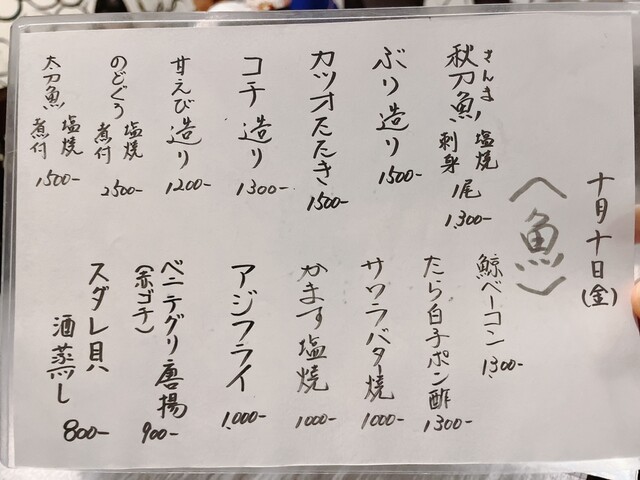 十月十日(金)
〈魚〉
さんま
秋刀魚 塩焼 刺身 1尾 1,300-
ぶり造り 1500-
カツオたたき 1500-
コチ造り 1300-
甘えび造り 1200-
のどぐろ 塩焼 煮付 2500-
太刀魚 塩焼 煮付 1500-
鯨ベーコン 1300-
たら白子ポン酢 1300-
サワラバター焼 1000-
かます塩焼 1000-
アジフライ 1,000-
ベニテグリ唐揚 900-
(赤ゴチ)
スダレ貝
酒蒸し 800-